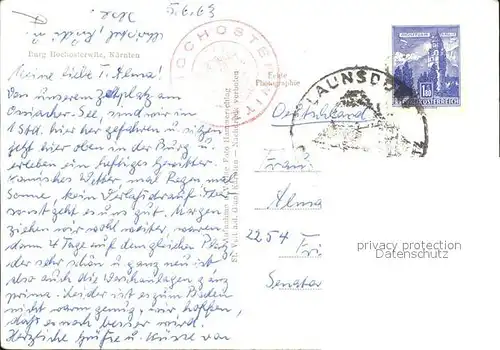 5.6.63
Burg Hochosterwitz, Kärnten
Meine liebe T. Alma!
Von unserem Zeltplatz am
Ossiacher-See, sind wir in
1 Std. hier her gefahren u. sitzen
jetzt hier oben in der Burg u.
erleben ein heftiges Gewitter.
Komisches Wetter mal Regen mal
Sonne, kein Verlaß drauf.
sonst geht es uns gut. Morgen
ziehen wir wohl weiter, waren
dann 4 Tage auf dem gleichen Platz
der sehr schön u. ganz neu ist
also auch die Waschanlagen ganz
prima. Leider ist es zum Baden
nicht warm genug, wir hoffen,
daß es noch besser wird.
Herzliche Grüße u. Küsse von
HOCHOSTERWITZ
Echte
Photographie
LAUNSDORF
1.80
REPUBLIK ÖSTERREICH
Deutschland
Frau
Alma
2254
Senator
privacy protection
Datenschutz